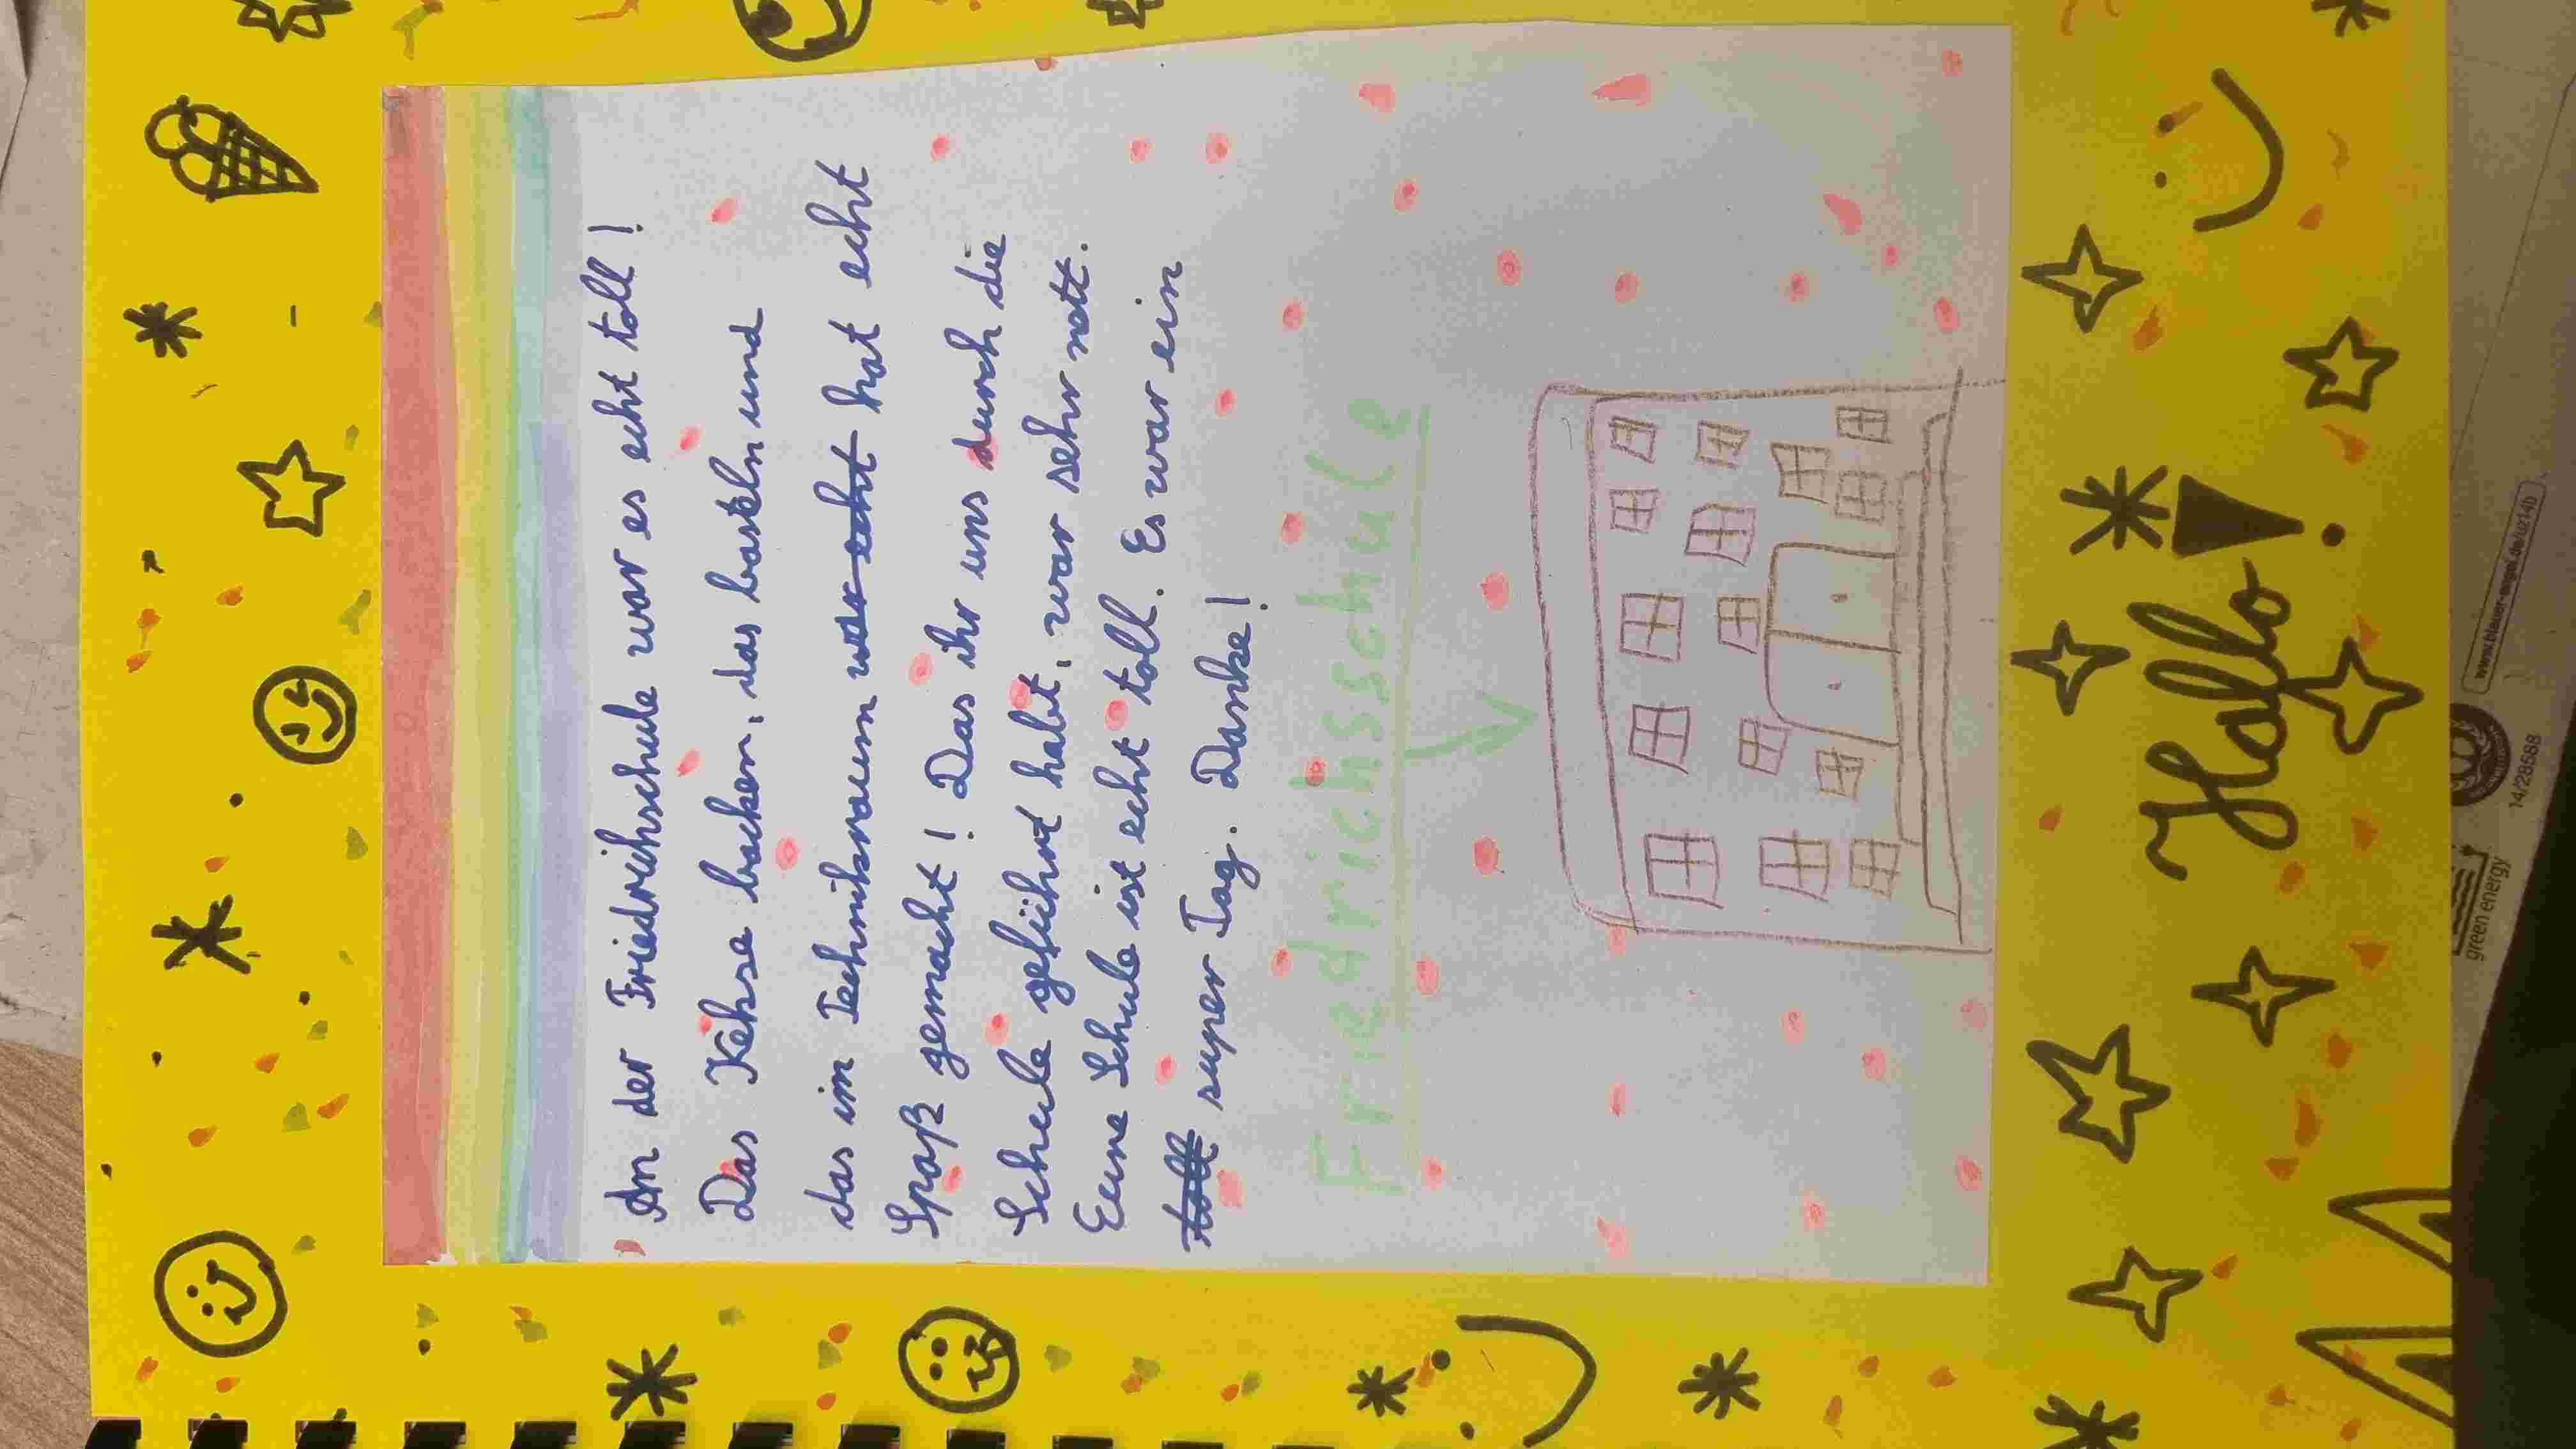 An der Friedrichschule war es echt toll!
Das Kekse backen, das basteln und
das im Technikraum war echt hat echt
Spaß gemacht! Das ihr uns durch die
Schule geführt habt, war sehr nett.
Eure Schule ist echt toll. Es war ein
toll super Tag. Danke!
Friedrichsschule
Hallo!
green energy
14/28688
www.blauer-engel.de/uz14b